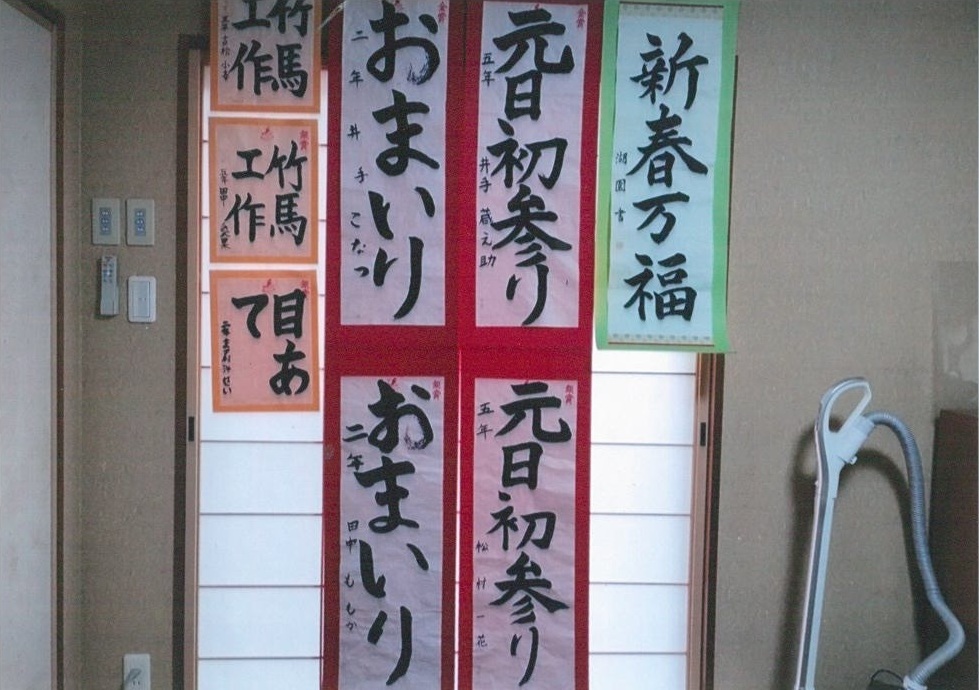 新春万福
湖園書
金賞
元日初参り
五年 井手蔵之助
金賞
おまいり
二年 井手こなつ
銀賞
元日初参り
五年 松村一花
銀賞
おまいり
二年 田中ももか
竹馬
工作
銀賞
竹馬
工作
目あ
て